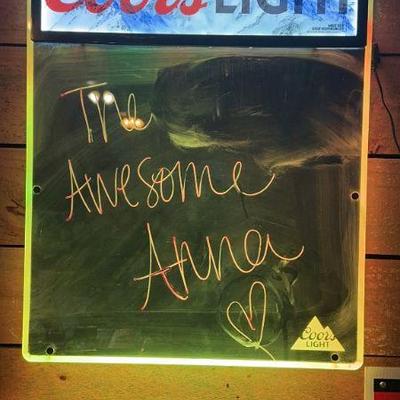 Coors LIGHT
The
Awesome
Anna
Coors
LIGHT